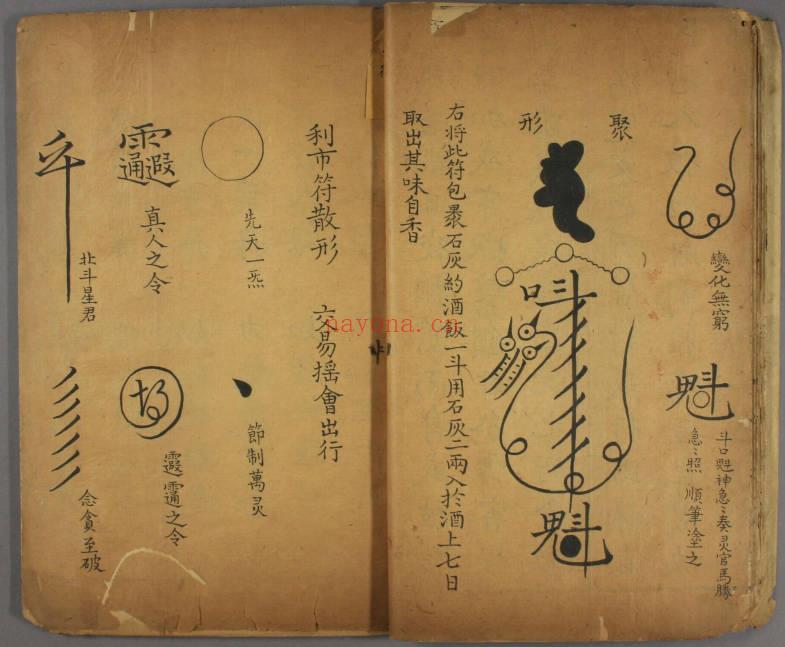 變化無窮
魁
斗口魁神急〻奏灵官馬勝
急〻照 順筆塗之
聚形
魁
右將此符包裹石灰約酒飯一斗用石灰二兩入於酒上七日
取出其味自香
利市符散形 交易揺會出行
先天一炁
節制萬灵
真人之令
霞霊之令
北斗星君
念貪至破
nayona.cn